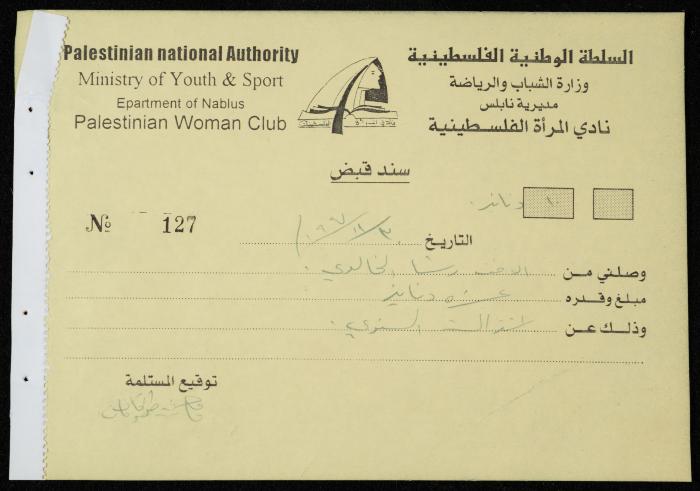 Palestinian national Authority
Ministry of Youth & Sport
Epartment of Nablus
Palestinian Woman Club
السلطة الوطنية الفلسطينية
وزارة الشباب والرياضة
مديرية نابلس
نادي المرأة الفلسطينية
سند قبض
دنانير
№ 127
التاريخ
وصلني من الاخت رشا الخالدي
مبلغ وقدره عشرة دنانير
وذلك عن اشتراك السنوي
توقيع المستلمة